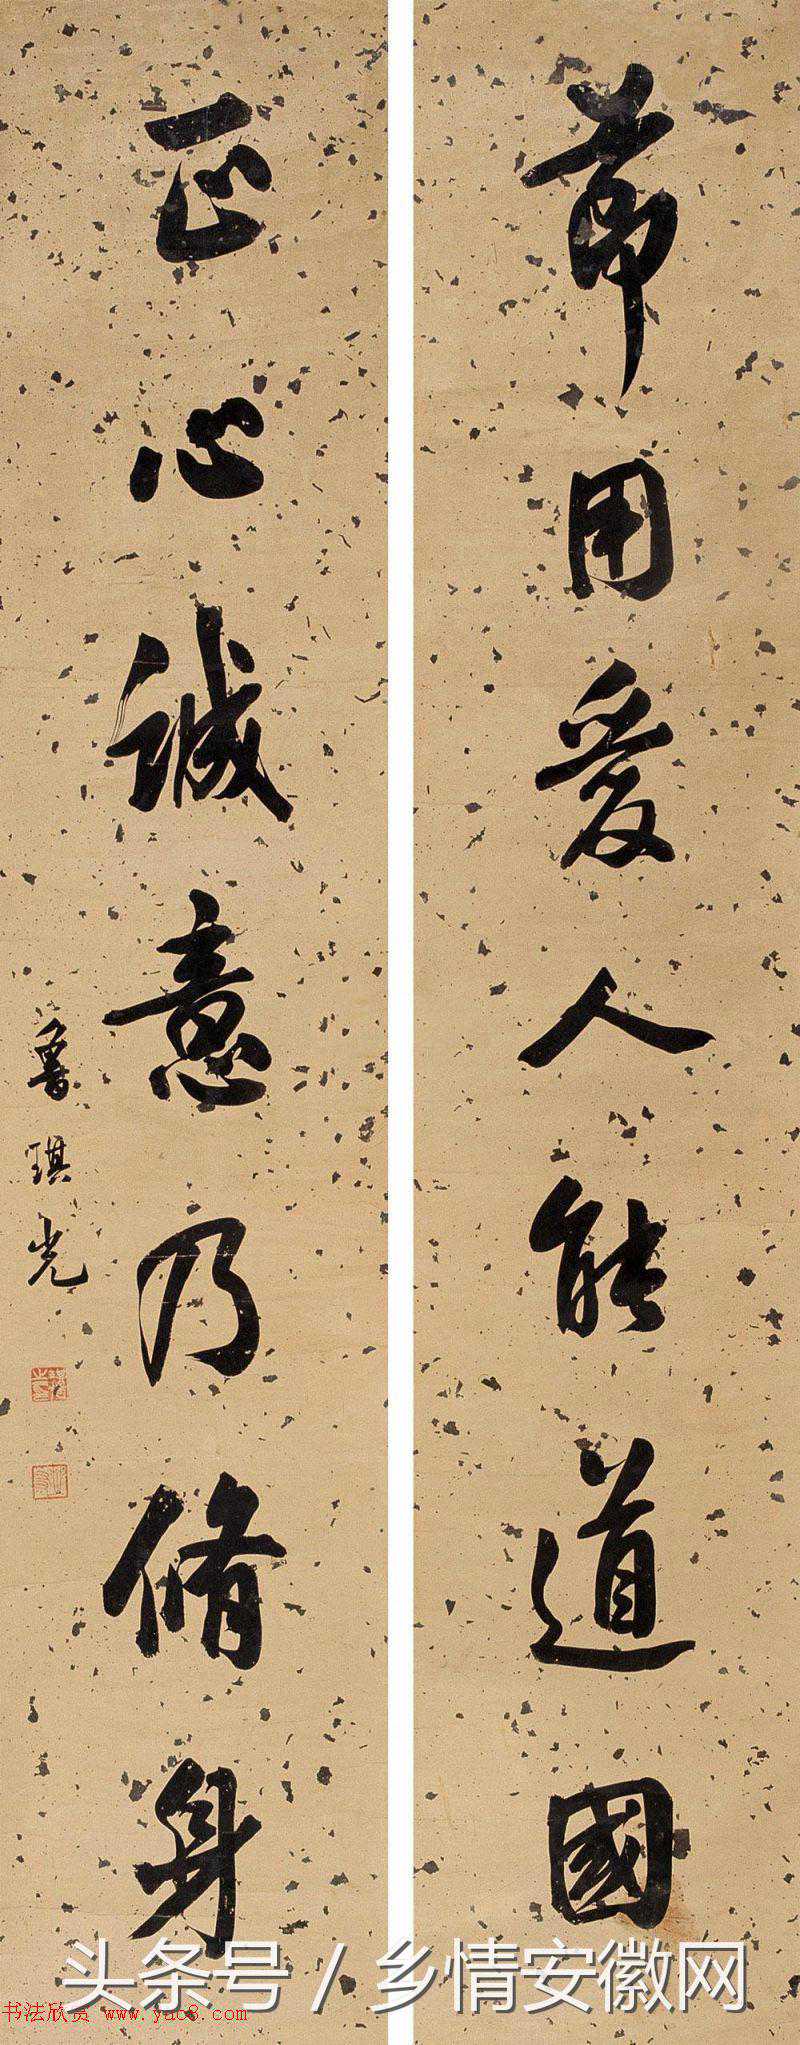 節用愛人能道國
正心誠意乃脩身
魯琪光
头条号 / 乡情安徽网
书法欣赏 www.yac8.com